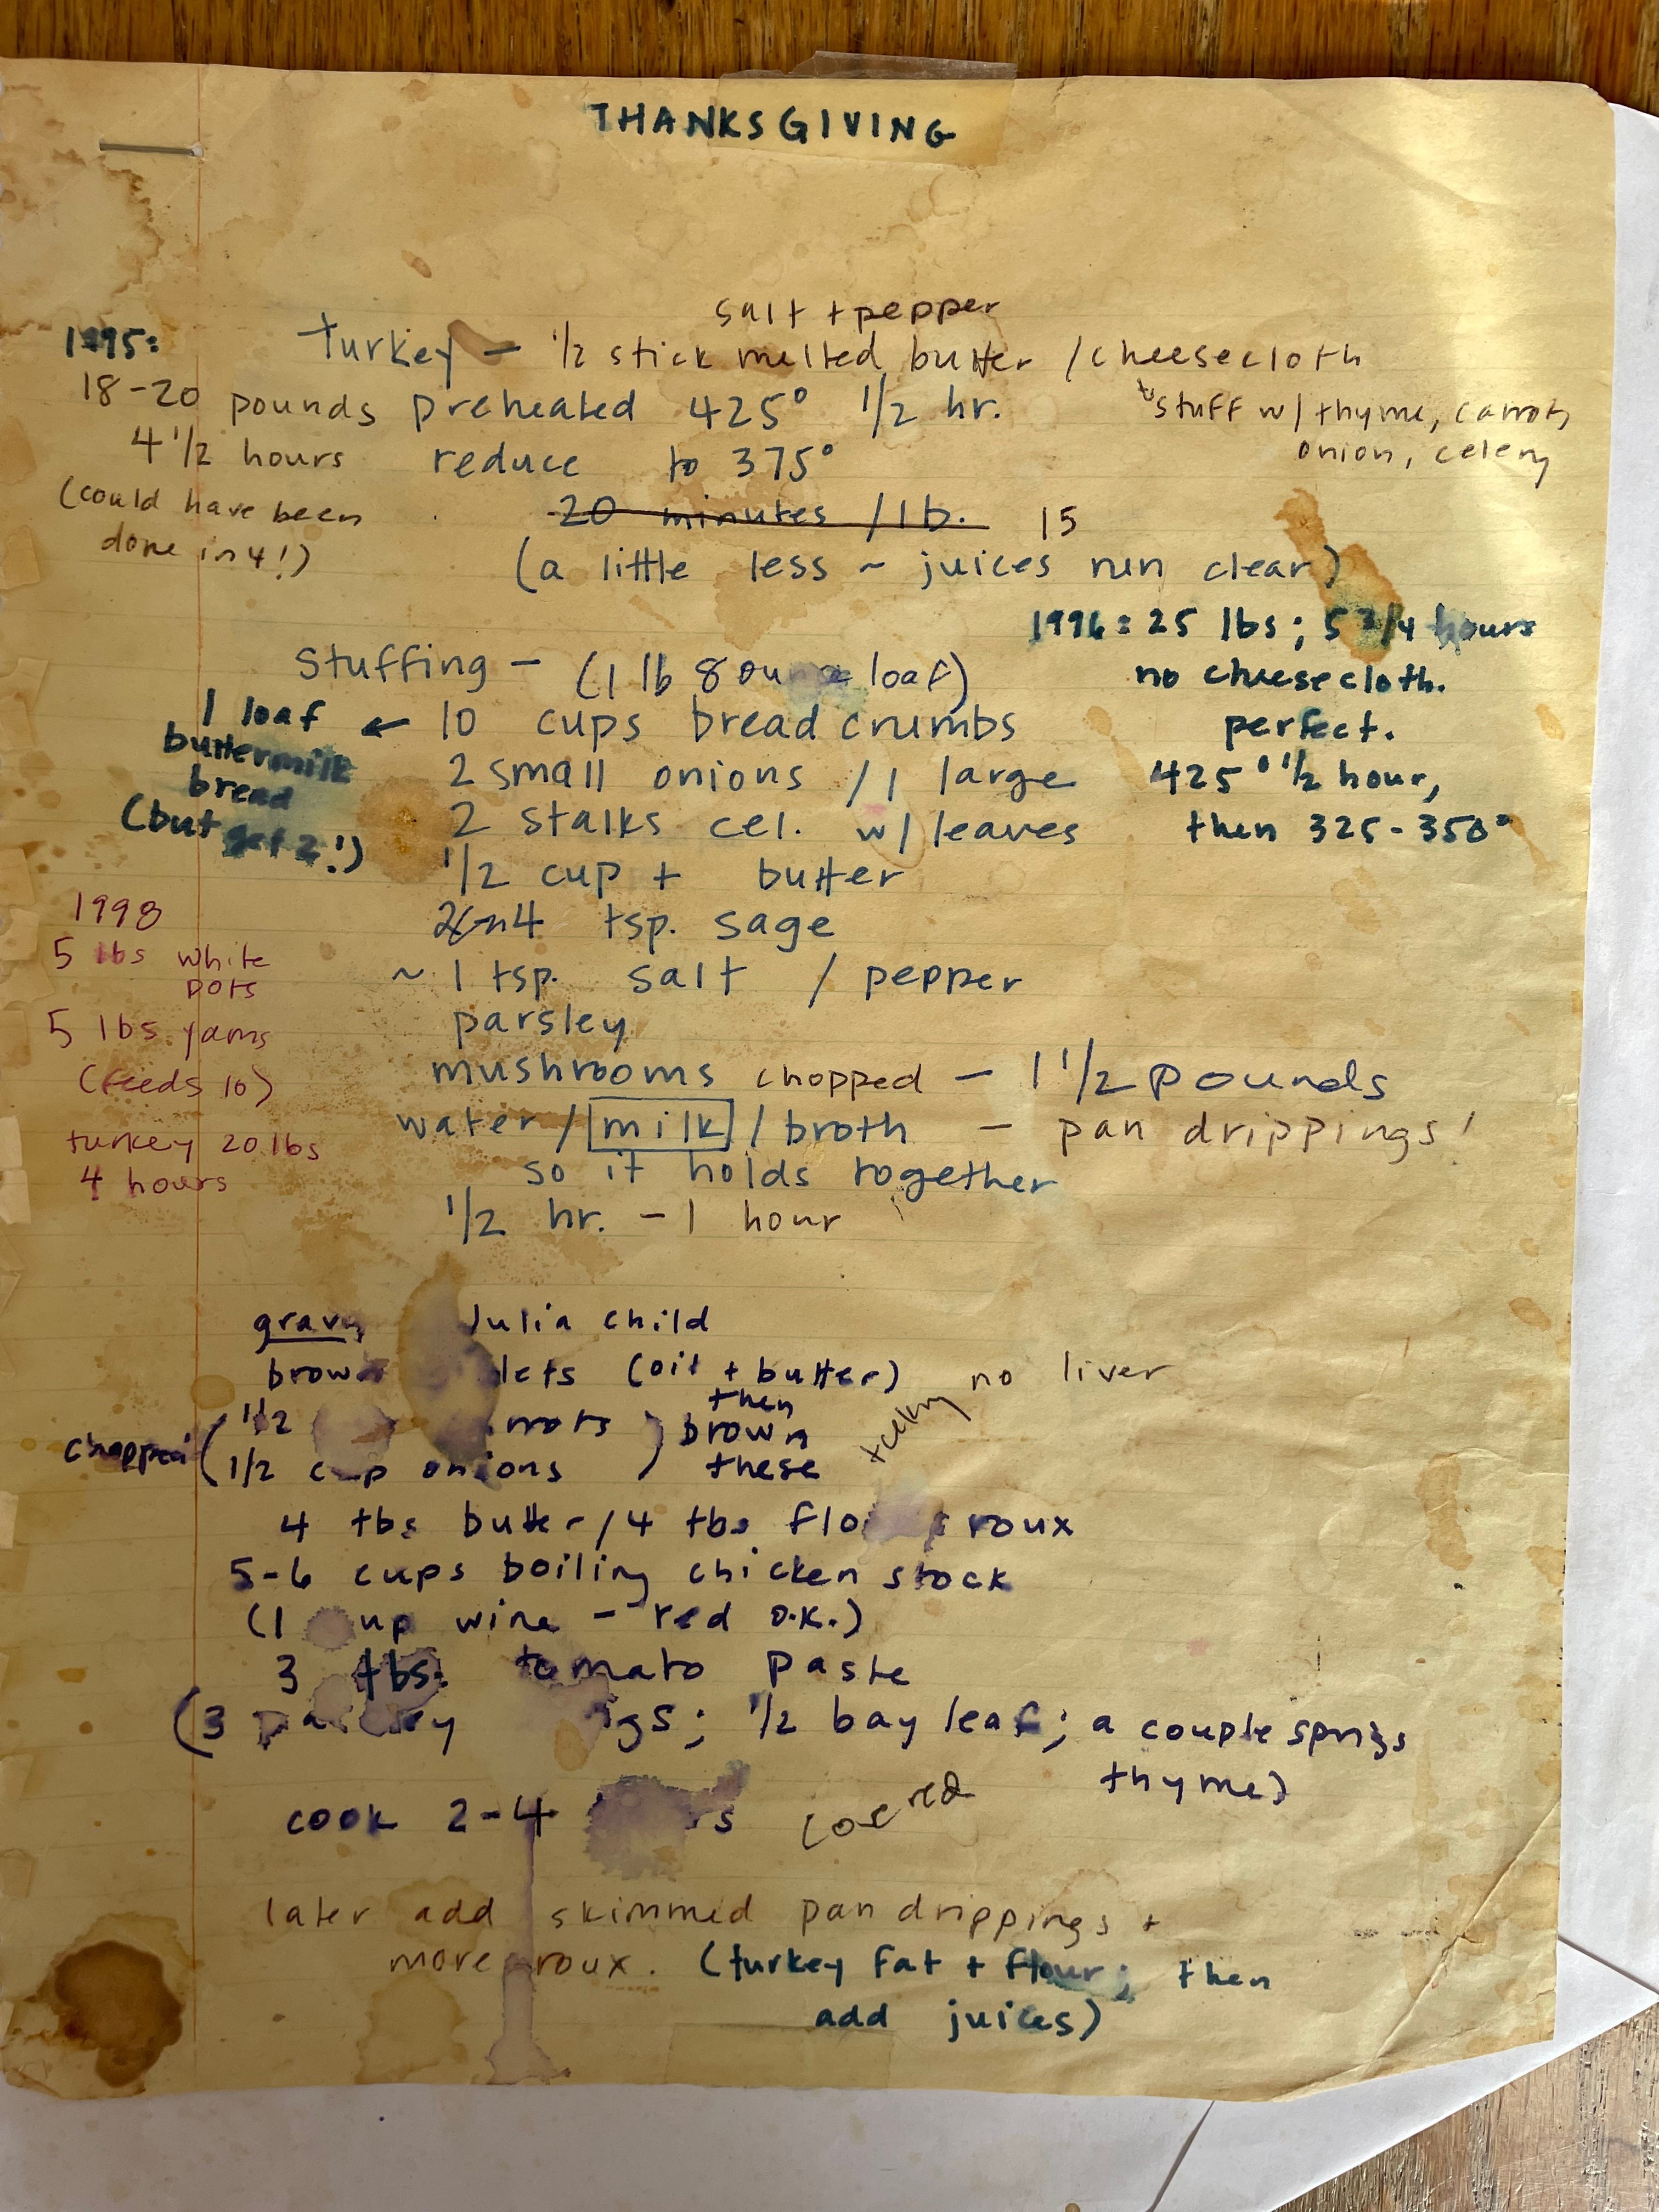 THANKSGIVING
salt + pepper
1995:
Turkey — 1/2 stick melted butter / cheesecloth
18-20 pounds
preheated 425° 1/2 hr.
stuff w/ thyme, carrots,
onion, celery
4 1/2 hours
reduce to 375°
(could have been
done in 4!)
20 minutes / lb. 15
(a little less ~ juices run clear)
1996: 25 lbs; 5 3/4 hours
no cheesecloth.
perfect.
425° 1/2 hour,
then 325-350°
Stuffing — (1 lb 8 ounce loaf)
1 loaf
buttermilk
bread
(but get 2!)
← 10 cups bread crumbs
2 small onions / 1 large
2 stalks cel. w/ leaves
1/2 cup + butter
4 tsp. sage
~ 1 tsp. salt / pepper
parsley
mushrooms chopped — 1 1/2 pounds
water / milk / broth — pan drippings!
so it holds together
1/2 hr. - 1 hour
1998
5 lbs white
pots
5 lbs yams
(feeds 10)
turkey 20 lbs
4 hours
gravy Julia Child
brown (oil + butter) no liver
chopped
(1/2
1/2 cup onions)
then
brown
these
4 tbs butter / 4 tbs roux
5-6 cups boiling chicken stock
(1 cup wine - red o.k.)
3 tbs. tomato paste
(3 parsley 1/2 bay leaf; a couple sprigs
thyme)
cook 2-4 covered
later add skimmed pan drippings +
more roux. (turkey fat + flour; then
add juices)